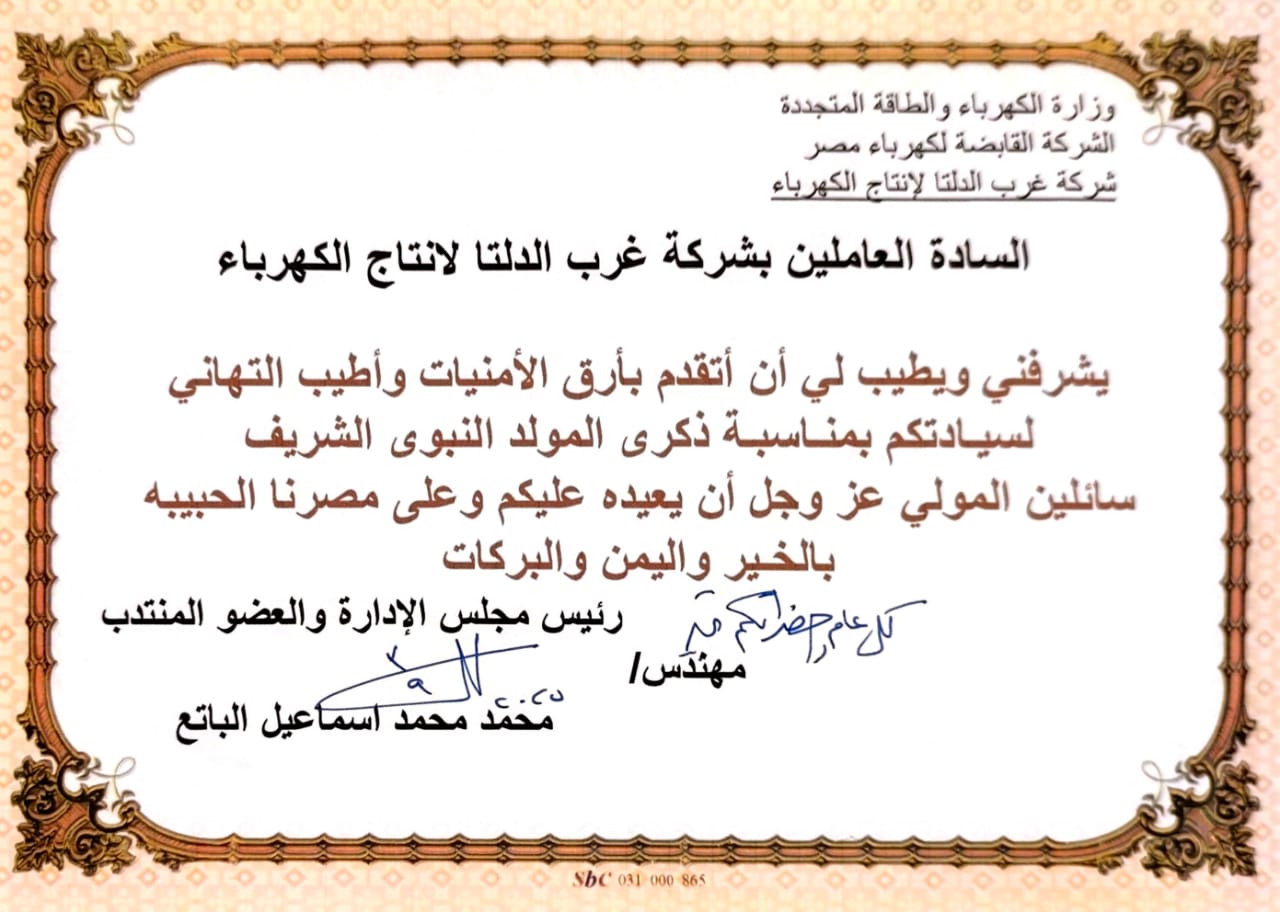 وزارة الكهرباء والطاقة المتجددة
الشركة القابضة لكهرباء مصر
شركة غرب الدلتا لإنتاج الكهرباء
السادة العاملين بشركة غرب الدلتا لانتاج الكهرباء
يشرفني ويطيب لي أن أتقدم بأرق الأمنيات وأطيب التهاني
لسيادتكم بمناسبة ذكرى المولد النبوى الشريف
سائلين المولي عز وجل أن يعيده عليكم وعلى مصرنا الحبيبه
بالخير واليمن والبركات
رئيس مجلس الإدارة والعضو المنتدب
كل عام وحضراتكم
مهندس/
محمد محمد اسماعيل الباتع
SbC 031 000 865